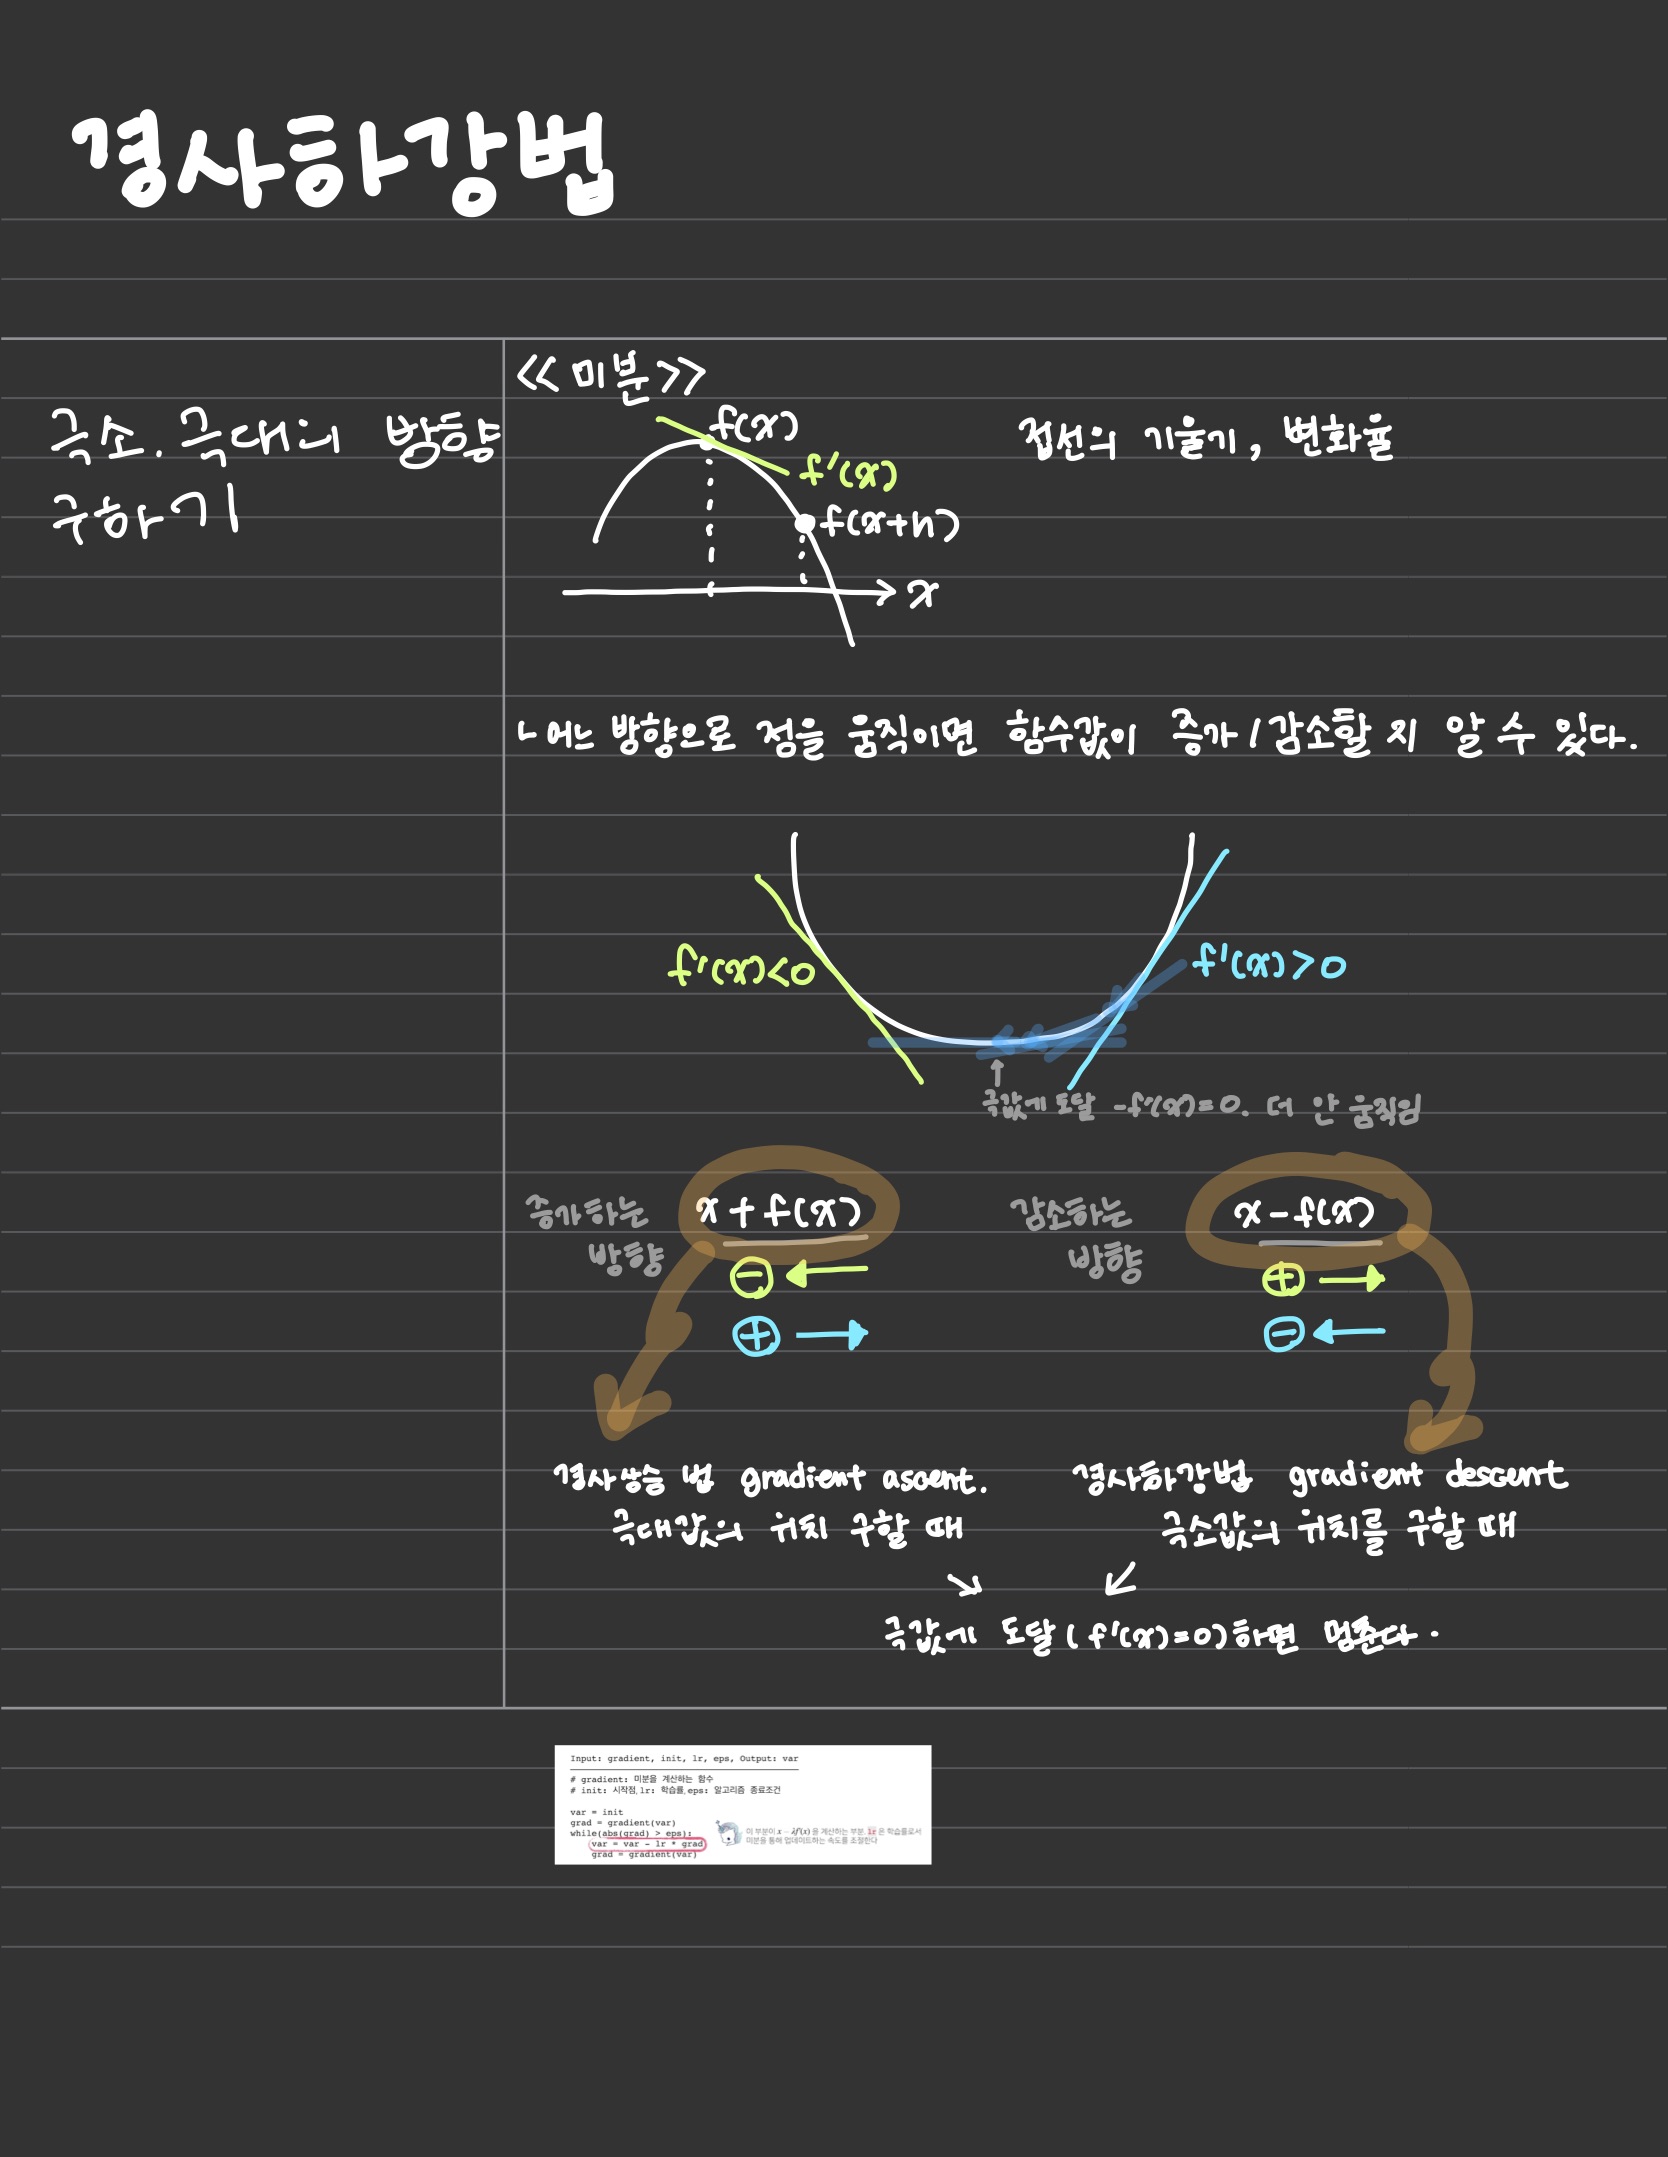 경사하강법
극소.극대의 방향
구하기
<<미분>>
f(x)
f'(x)
f(x+h)
x
접선의 기울기, 변화율
ㄴ어느 방향으로 점을 움직이면 함수값이 증가/감소할 지 알 수 있다.
f'(x)<0
f'(x)>0
↑
극값에 도달 -f'(x)=0. 더 안 움직임
증가하는
방향
x+f(x)
⊖ ←
⊕ →
감소하는
방향
x-f(x)
⊕ →
⊖ ←
경사상승 법 gradient ascent.
극대값의 위치 구할 때
경사하강법 gradient descent
극소값의 위치를 구할 때
↘ ↙
극값에 도달(f'(x)=0)하면 멈춘다.
Input: gradient, init, lr, eps, Output: var
# gradient: 미분을 계산하는 함수
# init: 시작점, lr: 학습률, eps: 알고리즘 종료조건
var = init
grad = gradient(var)
while(abs(grad) > eps):
var = var - lr * grad
grad = gradient(var)
이 부분이 x - λf'(x) 을 계산하는 부분. lr 은 학습률로서
미분을 통해 업데이트하는 속도를 조절한다